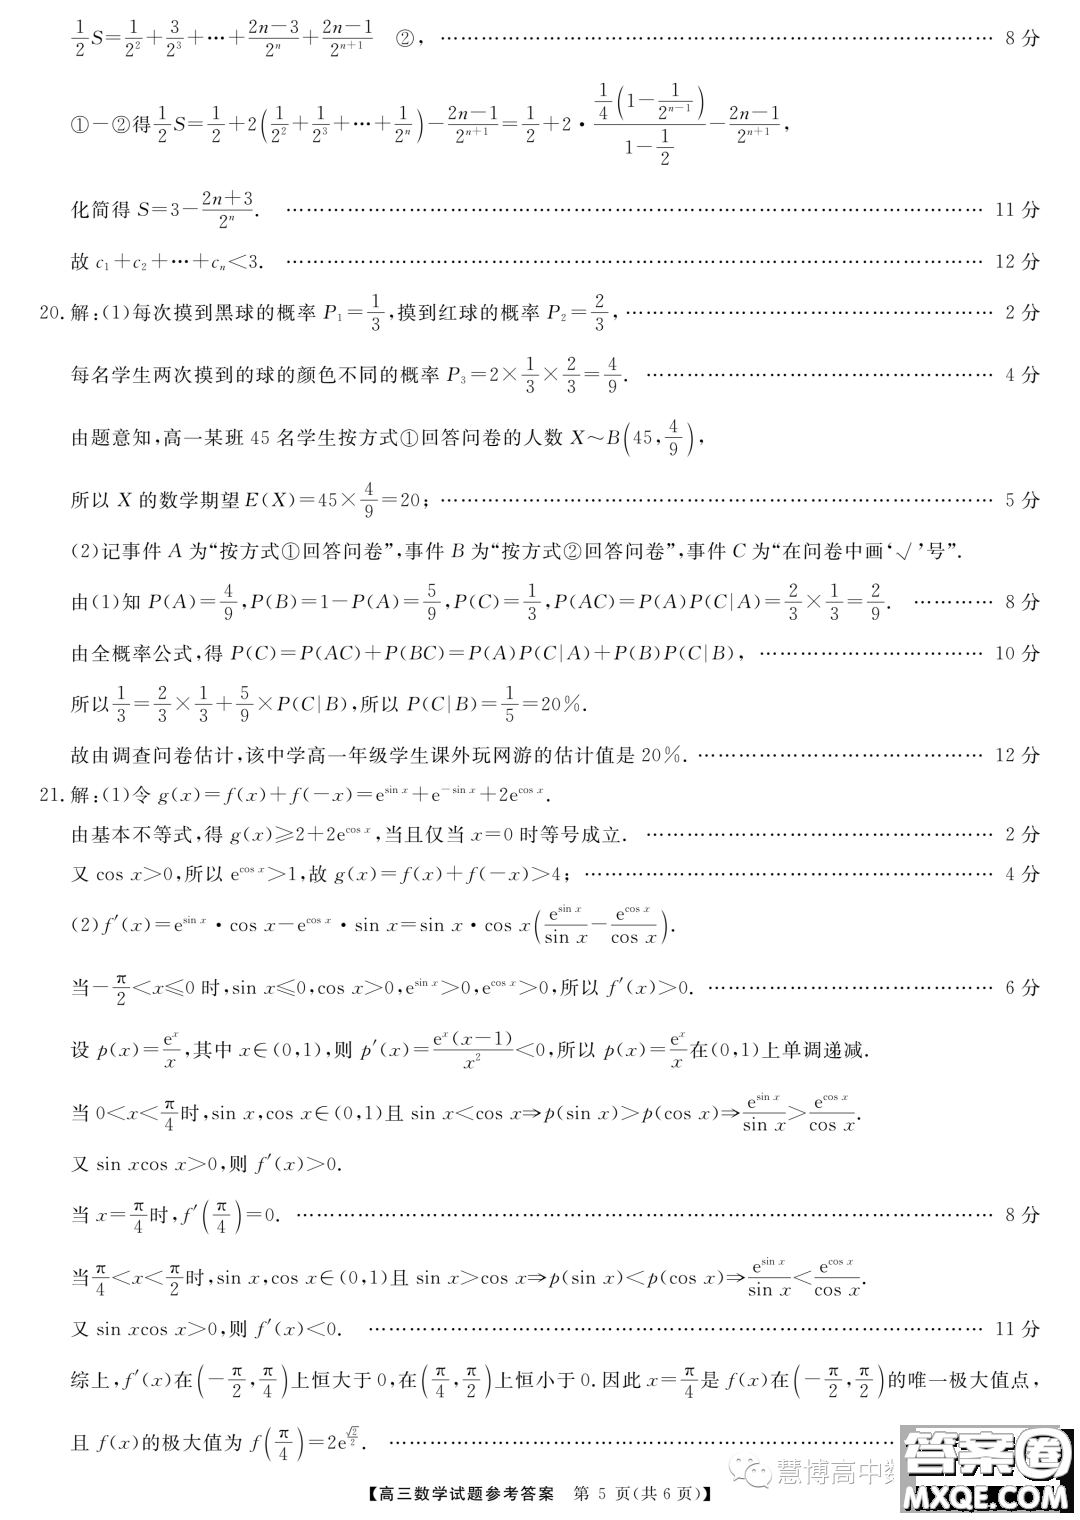 1/2 S=1/2²+3/2³+⋯+(2n−3)/2ⁿ+(2n−1)/2ⁿ⁺¹ ②, ………… 8 分
①−②得1/2 S=1/2+2(1/2²+1/2³+⋯+1/2ⁿ)−(2n−1)/2ⁿ⁺¹=1/2+2·[1/4(1−1/2ⁿ⁻¹)]/(1−1/2)−(2n−1)/2ⁿ⁺¹,
化简得 S=3−(2n+3)/2ⁿ. ………… 11 分
故 c₁+c₂+⋯+cₙ<3. ………… 12 分
20. 解:(1)每次摸到黑球的概率 P₁=1/3,摸到红球的概率 P₂=2/3, ………… 2 分
每名学生两次摸到的球的颜色不同的概率 P₃=2×1/3×2/3=4/9. ………… 4 分
由题意知,高一某班 45 名学生按方式①回答问卷的人数 X~B(45,4/9),
所以 X 的数学期望 E(X)=45×4/9=20; ………… 5 分
(2)记事件 A 为“按方式①回答问卷”,事件 B 为“按方式②回答问卷”,事件 C 为“在问卷中画‘√’号”.
由(1)知 P(A)=4/9,P(B)=1−P(A)=5/9,P(C)=1/3,P(AC)=P(A)P(C|A)=2/3×1/3=2/9. ………… 8 分
由全概率公式,得 P(C)=P(AC)+P(BC)=P(A)P(C|A)+P(B)P(C|B), ………… 10 分
所以1/3=2/3×1/3+5/9×P(C|B),所以 P(C|B)=1/5=20%.
故由调查问卷估计,该中学高一年级学生课外玩网游的估计值是 20%. ………… 12 分
21. 解:(1)令 g(x)=f(x)+f(−x)=e^(sin x)+e^(−sin x)+2e^(cos x).
由基本不等式,得 g(x)≥2+2e^(cos x),当且仅当 x=0 时等号成立. ………… 2 分
又 cos x>0,所以 e^(cos x)>1,故 g(x)=f(x)+f(−x)>4; ………… 4 分
(2)f′(x)=e^(sin x)·cos x−e^(cos x)·sin x=sin x·cos x(e^(sin x)/sin x−e^(cos x)/cos x).
当−π/2<x≤0 时,sin x≤0,cos x>0,e^(sin x)>0,e^(cos x)>0,所以 f′(x)>0. ………… 6 分
设 p(x)=eˣ/x,其中 x∈(0,1),则 p′(x)=eˣ(x−1)/x²<0,所以 p(x)=eˣ/x在(0,1)上单调递减.
当 0<x<π/4时,sin x,cos x∈(0,1)且 sin x<cos x⇒p(sin x)>p(cos x)⇒e^(sin x)/sin x>e^(cos x)/cos x.
又 sin xcos x>0,则 f′(x)>0.
当 x=π/4时,f′(π/4)=0. ………… 8 分
当π/4<x<π/2时,sin x,cos x∈(0,1)且 sin x>cos x⇒p(sin x)<p(cos x)⇒e^(sin x)/sin x<e^(cos x)/cos x.
又 sin xcos x>0,则 f′(x)<0. ………… 11 分
综上,f′(x)在(−π/2,π/4)上恒大于 0,在(π/4,π/2)上恒小于 0.因此 x=π/4是 f(x)在(−π/2,π/2)的唯一极大值点,
且 f(x)的极大值为 f(π/4)=2e^(√2/2). …………
慧博高中数
答案圈
MXQE.COM
【高三数学试题参考答案 第 5 页(共 6 页)】